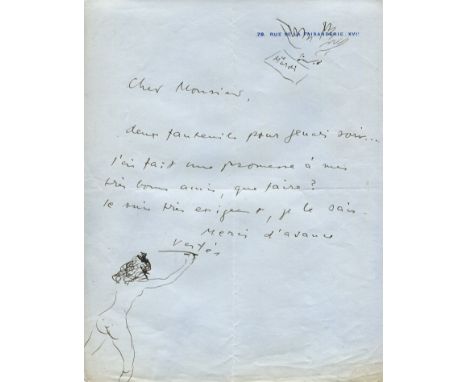 78. RUE DE LA FAISANDERIE. XVIᵉ
Cher Monsieur,
deux fauteuils pour jeudi soir...
J'ai fait une promesse à mes
très bons amis, que faire?
Je suis très exigeant, je le sais.
Merci d'avance
Vertès